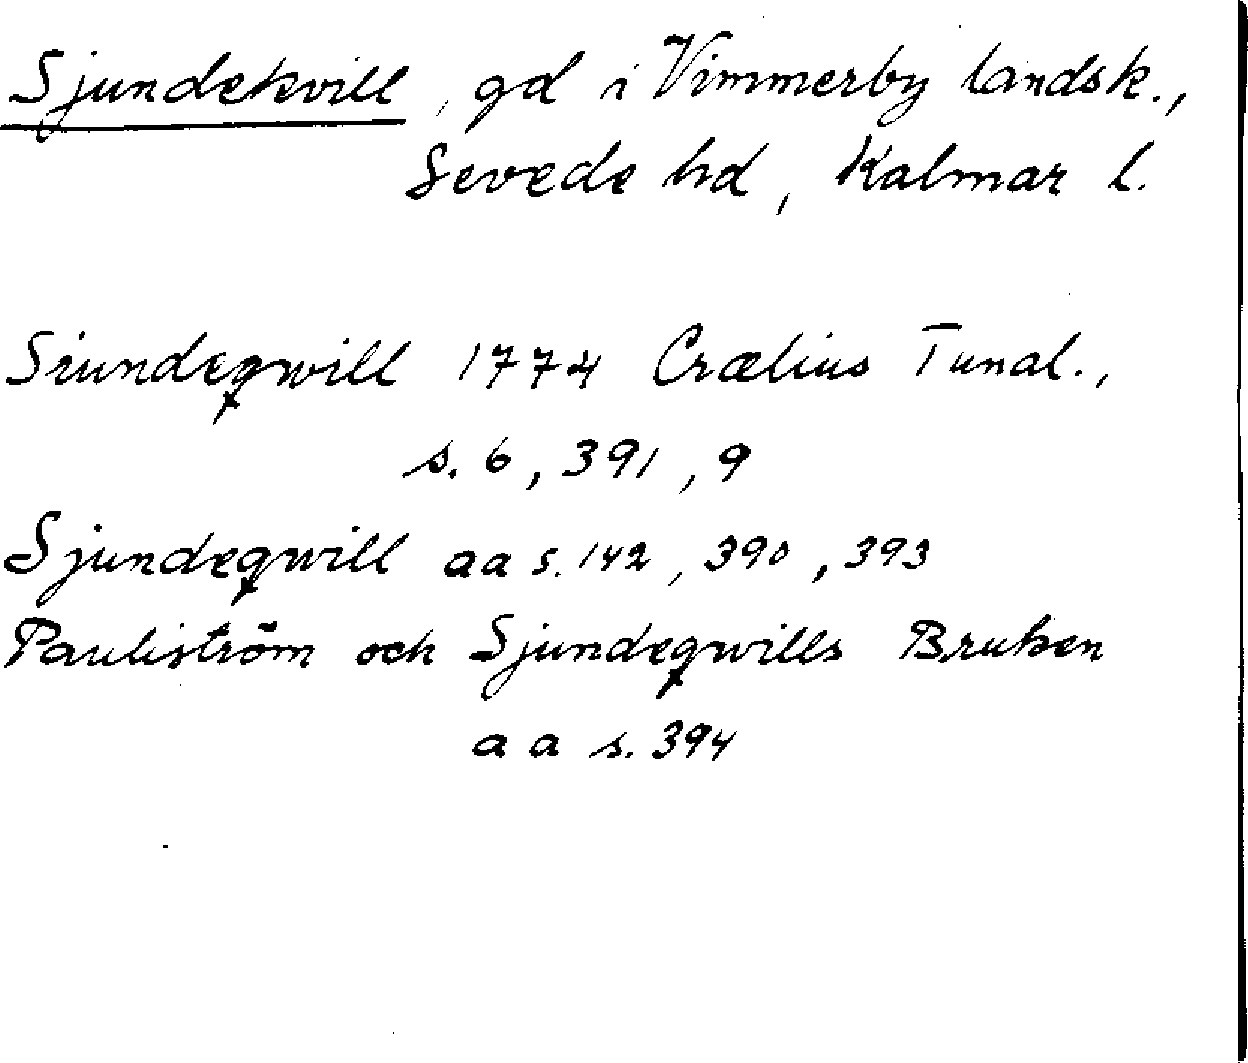 Sjundekvill, gd i Vimmerby landsk.,
Sevede hd, Kalmar l.
Siundeqwill 1774 Crælius Tunal.,
s. 6, 391, 9
Sjundeqwill aa s. 142, 390, 393
Pauliström och Sjundeqwills Bruken
aa s. 394